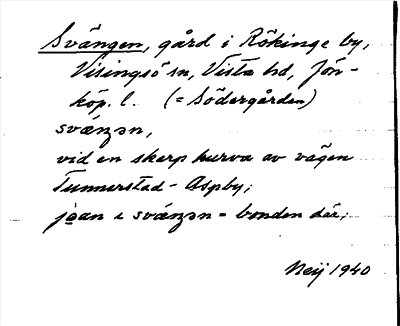 Svängen, gård i Rökinge by,
Visingsö sn, Vista hd, Jön-
köp. l. (= Södergården)
svǽŋən,
vid en skarp kurva av vägen
Tunnerstad - Aspby;
jo̱an i svǽŋən = bonden där;
Neij 1940